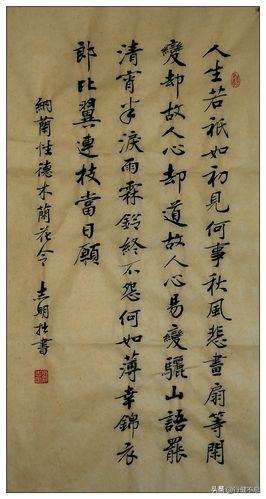 人生若祇如初見何事秋風悲畫扇等閒
變却故人心却道故人心易變驪山語罷
清宵半淚雨霖鈴終不怨何如薄幸錦衣
郎比翼連枝當日願
納蘭性德木蘭花令 拙書
头条